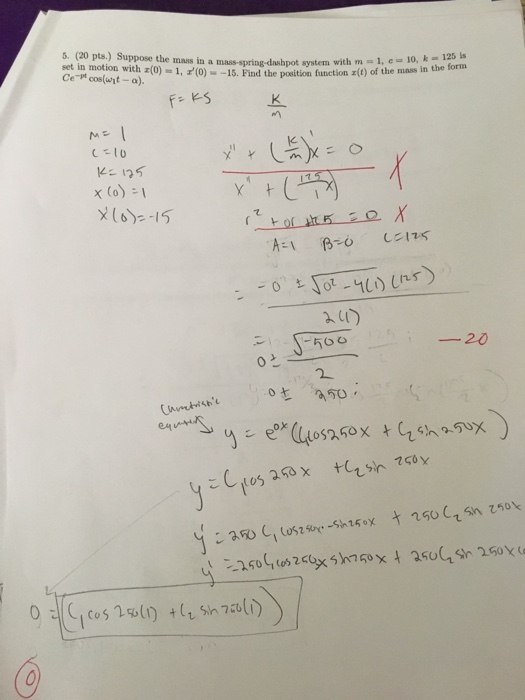 5. (20 pts.) Suppose the mass in a mass-spring-dashpot system with m = 1, c = 10, k = 125 is
set in motion with x(0) = 1, x'(0) = −15. Find the position function x(t) of the mass in the form
Ce^{-pt} cos(ω₁t − α).
F = KS
K/m
m = 1
c = 10
K = 125
x(0) = 1
x'(0) = -15
x'' + (K/m)x = 0
x'' + (125/1 x) X
r² + 0r 125 = 0 X
A=1 B=0 C=125
= -0 ± √0² - 4(1)(125)
2(1)
= 0 ± √-500
2
-20
0 ± 250i
equation
y = e^{0x} (C₁cos250x + C₂ sin 250x)
y = C₁cos 250x + C₂ sin 250x
y' = 250 C₁ cos250x · -sin250x + 250 C₂ sin 250x
y' = -250 C₁ cos 250x sin 250x + 250 C₂ sin 250x
0 = (C₁ cos 250(1) + C₂ sin 250(1))
0